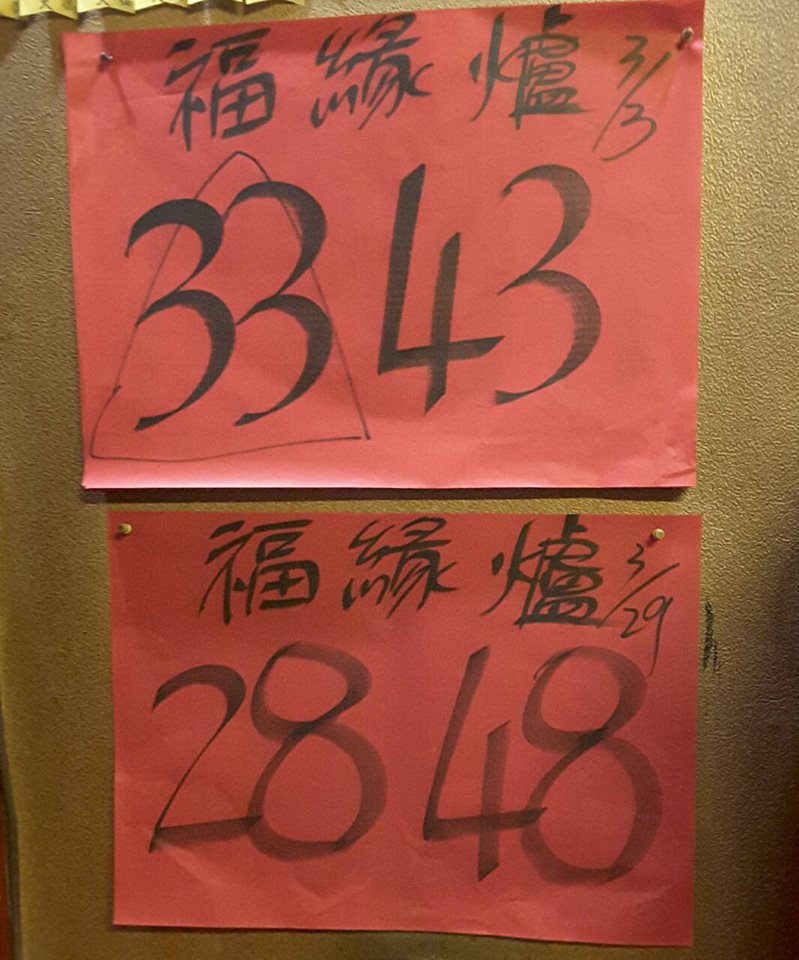 福緣爐 3/3
33 43
福緣爐 3/29
28 48